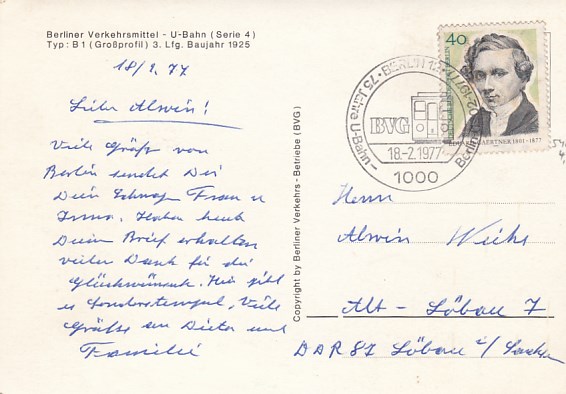 Berliner Verkehrsmittel - U-Bahn (Serie 4)
Typ: B1 (Großprofil) 3. Lfg. Baujahr 1925
18/2.77
Lieber Alwin!
Viele Grüße von
Berlin sendet Dir
Dein Schwager Franz u
Irma. Haben heute
Deinen Brief erhalten
vielen Dank für die
Glückwünsche. Hier gibt
es Sonderstempel. Viele
Grüße an Dieter und
Familie
Copyright by Berliner Verkehrs-Betriebe (BVG)
40
1801-1877
75 Jahre U-Bahn
BERLIN 12
BVG
18.-2.1977
1000
Herrn
Alwin
Alt-Löbau 7
DDR 87 Löbau i/ Sachsen